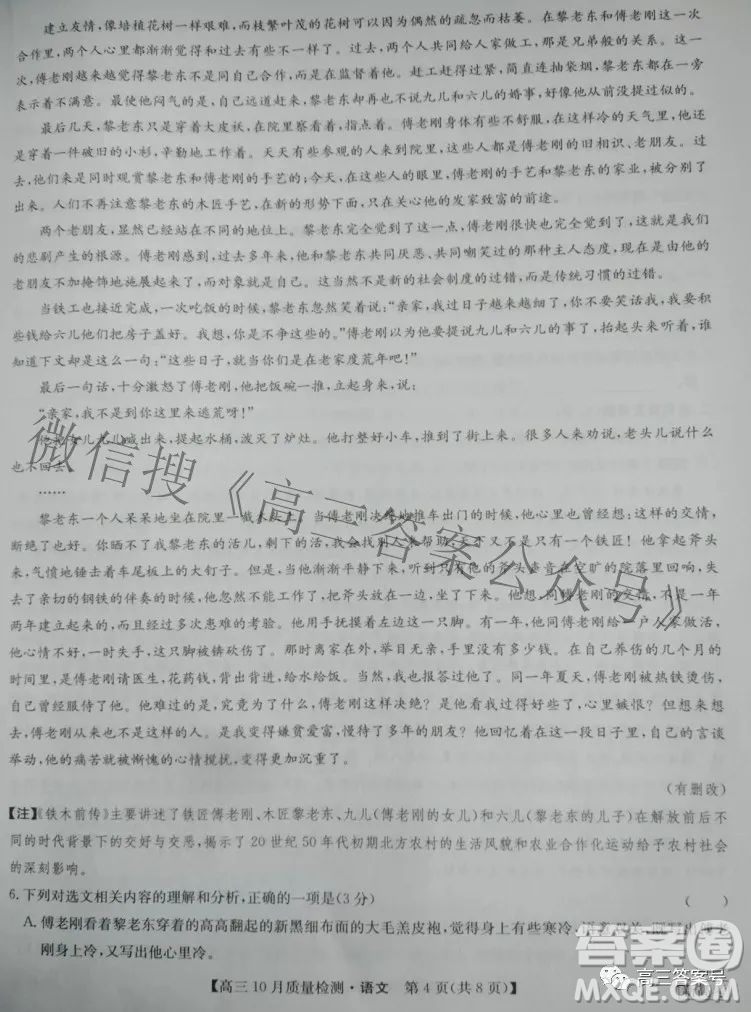 建立友情,像培植花树一样艰难,而枝繁叶茂的花树可以因为偶然的疏忽而枯萎。在黎老东和傅老刚这一次
合作里,两个人心里都渐渐觉得和过去有些不一样了。过去,两个人共同给人家做工,那是兄弟般的关系。这一
次,傅老刚越来越觉得黎老东不是同自己合作,而是在监督着他。赶工赶得过紧,简直连抽袋烟,黎老东都在一旁
表示着不满意。最使他闷气的是,自己远道赶来,黎老东却再也不说九儿和六儿的婚事,好像他从前没提过似的。
最后几天,黎老东只是穿着大皮袄,在院里察看着,指点着。傅老刚身体有些不舒服,在这样冷的天气里,他还
是穿着一件破旧的小衫,辛勤地工作着。天天有些参观的人来到院里,这些人都是他们的旧相识、老朋友。过去,
他们时常同时观赏黎老东和傅老刚的手艺的;今天,在这些人的眼里,傅老刚的手艺和黎老东的家业,被分别了
出来。人们不再注意黎老东的木匠手艺,在新的形势下面,只在关心他的发家致富的前途。
两个老朋友,显然已经站在不同的地位上。黎老东完全觉到了这一点,傅老刚很快也完全觉到了,这是他们
的悲剧产生的根源。傅老刚已经感觉到,过去多年来,他和黎老东共同厌恶、共同嘲笑过的那种主人态度,现在由他的
老朋友不加掩饰地施展了出来,而对象就是自己。这当然不是新的社会制度的过错,而是传统习惯的过错。
当铁工也接近完成,一次吃饭的时候,黎老东忽然笑着说:“亲家,我过日子越来越细了,你不要笑话我,我要积
些钱给六儿他们把房子盖好。我想,你是不争这些的。”傅老刚以为他要提说九儿和六儿的事了,抬起头来听着,谁
知道下文却是这么一句:“这些日子,就当你们是在老家度荒年吧!”
最后一句话,十分激怒了傅老刚,他把饭碗一推,立起身来,说:
“亲家,我不到你这里来逃荒呀!”
他把女儿九儿喊出来,提起水桶,泼灭了炉灶。他整好小车,推到了街上来。很多人来劝说,老头儿说什么
也不回去。
……
黎老东一个人呆呆地坐在院里一截木头上。当傅老刚决绝地推车出门的时候,他心里也曾经想:这样的交情,
断绝了也好。你晒不了我黎老东的活儿,剩下的活,我会找别人来帮助,天下又不是只有一个铁匠!他拿起斧头
来,气愤地锤击着车尾板上的大钉子。当他渐渐平静下来,听到只有他的斧头声音在空旷的院落里回响,失去
了亲切的钢铁的伴奏的时候,他忽然不能工作了,把斧头放在一边。他想,同傅老刚的交情,不是一年
两年建立起来的,而是经过多次患难的考验。他用手抚摸着左边这一只脚。有一年,他同傅老刚给一户人家做活,
他心情不好,一时失手,这只脚被锛砍伤了。那时光棍一人,手里没有多少钱。在自己养伤的几个月的
时间里,是傅老刚请医生,花药钱,背出背进,给水给饭。当然,我也报答过他了。同一年夏天,傅老刚被热铁烫伤,
我也侍候了他。他难过的是,究竟为了什么,傅老刚这样决绝?是他看我过得好些了,心里嫉恨?但想来想
去,傅老刚从来也不是这样的人。是我变得嫌贫爱富,慢待了多年的朋友?他回忆着在这一段日子里,自己的言谈
举动,他的痛苦就被惭愧的心情搅扰,变得更加沉重了。
(有删改)
【注】《铁木前传》主要讲述了铁匠傅老刚、木匠黎老东、九儿(傅老刚的女儿)和六儿(黎老东的儿子)在解放前后不
同的时代背景下的交好与交恶,揭示了20世纪50年代初期北方农村的生活风貌和农业合作化运动给予农村社会
的深刻影响。
6.下列对选文相关内容的理解和分析,正确的一项是(3分) ( )
A.傅老刚看着黎老东穿着的高高翻起的新黑细布面的大毛羔皮袍,觉得身上有些寒冷,
刚身上冷,又写出他心里冷。
【高三10月质量检测·语文 第4页(共8页)】
微信搜《高三答案公众号》
答案圈
高三答案号